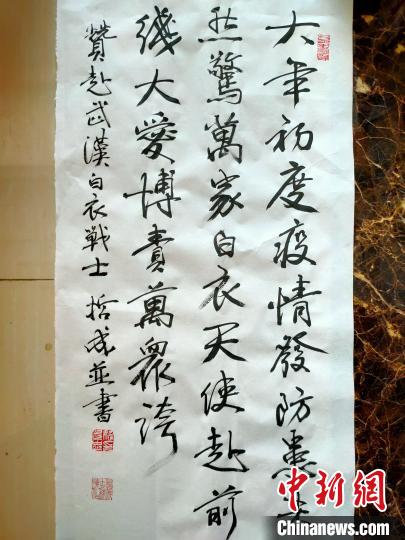 大年初度疫情發防患
然驚萬家白衣天使赴前
綫大愛博萬眾誇
贊赴武漢白衣戰士 成並書
中新網
www.chinanews.com